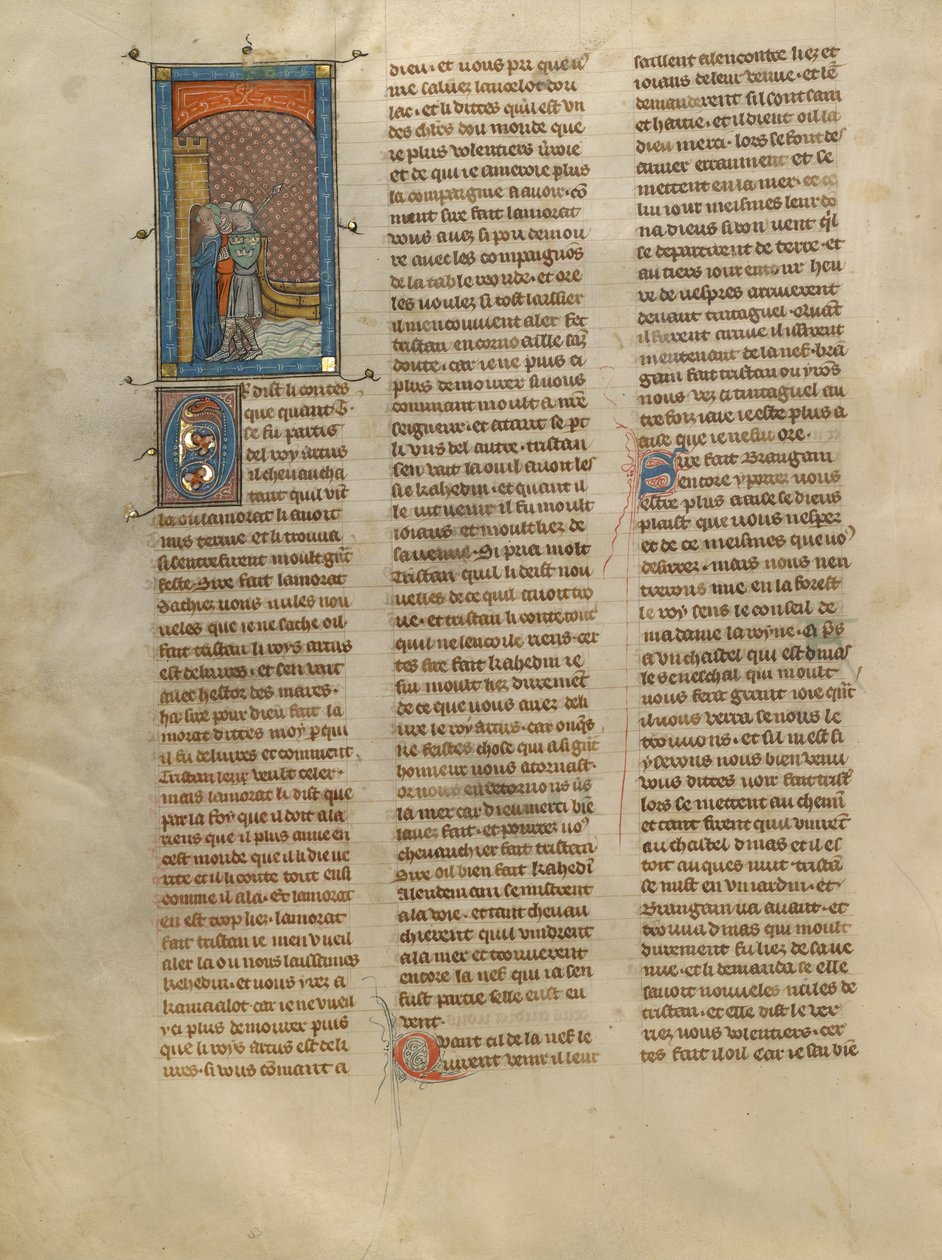 r dist li contes
que quant T.
se fu partis
del roy artus
il cheuaucha
tant quil vit
la ou lamorat li auoit
mis terme et li trouua
si sentrefirent moult grt
feste. Sire fait lamorat
Sachiez uous nules nou
ueles que ie ne sache oil
fait tristan li roys artus
est deliures. et sen vait
auec hestor des mares.
ha sire pour dieu fait la
morat dittes moy p qui
il fu deliures et comment
Tristan leur veult celer.
mais lamorat li dist que
par la foy que il doit a la
riens que il plus aime en
cest monde que il li die ue
rite et il li conte tout ensi
comme il ala. Et lamorat
en est trop liez. lamorat
fait tristan ie men vueil
aler la ou nous laissames
kehedin. et uous yrez a
kamaalot car ie ne vueil
yci plus demourer puis
que li roys artus est deli
ures. si vous comant a
dieu. et uous pri que u9
me saluez lancelot dou
lac. et li dittes quil est vn
des chrs dou monde que
ie plus volentiers verroie
et de qui ie ameroie plus
la compaignie a auoir. co
ment sire fait lamorat
vous auez si pou demou
re auec les compaignos
de la table reonde. et ore
les uoulez si tost laissier
il men couuient aler fet
tristan en cornoaille sanz
doute. car ie ne puis ci
plus demourer si uous
commant moult a mre
seigneur. et atant se pt
li vns del autre. tristan
sen vait la ou il auoit les
sie kahedin. et quant il
le uit uenir il fu moult
ioians et moult liez de
sa uenue. Si pria molt
Tristan quil li deist nou
uelles de ce quil auoit tro
ue. et tristan li conte tout
quil ne len coile riens. cer
tes sire fait kahedin ie
sui moult liez durement
de ce que uous auez deli
ure le roy artus. car onqs
ne feistes chose qui a si grt
honneur uous atornast.
or nous en retornons vs
la mer car dieu merci bie
lauez fait. et pourrez uo9
cheuauchier fait tristan
Sire oil bien fait kahedi
A lendemain se mistrent
a la uoie. et tant cheuau
chierent quil vindrent
a la mer et trouuerent
encore la nef qui ia sen
fust partie selle eust eu
vent.
Quant cil de la nef le
uirent venir il leur
saillent a lencontre liez et
ioians de leur venue. et le
demanderent sil sont sain
et haitie. et il dient oil la
dieu merci. lors se font des
armer erraument et se
mettent en la mer. ce ce
lui iour meismes leur do
na dieus si bon vent qil
se departirent de terre. et
au tiers iour entour heu
re de uespres arriuerent
deuant tintaguel. quant
il furent arriue il issirent
meintenant de la nef. bra
gain fait tristan ou yros
nous. vez ci tintaguel au
tre foiz iaie ie este plus a
aise que ie ne sui ore.
Sire fait Braugain
encore y porrez uous
estre plus a aise se dieus
plaist que uous nesper
et de ce meismes que uo9
desirrez. mais nous nen
trerons mie en la forest
le roy sens le conseil de
ma dame la royne. Ci ps
a vn chastel qui est dinas
le seneschal qui moult
uous fera grant ioie qnt
il uous verra se nous le
trouuons. et sil niest si
y serons nous bien venu
vous dittes voir fait trist
lors se mettent au chemi
et tant firent quil vinrent
au chastel dinas et il es
toit auques nuit. tristan
se mist en vn iardin. et
Braugain ua auant. et
trouua dinas qui moult
durement fu liez de sa ue
nue. et li demanda se elle
sauoit nouueles nules de
tristan. et elle dist le ver
riez uous volentiers. cer
tes fait il oil Car ie sai bie